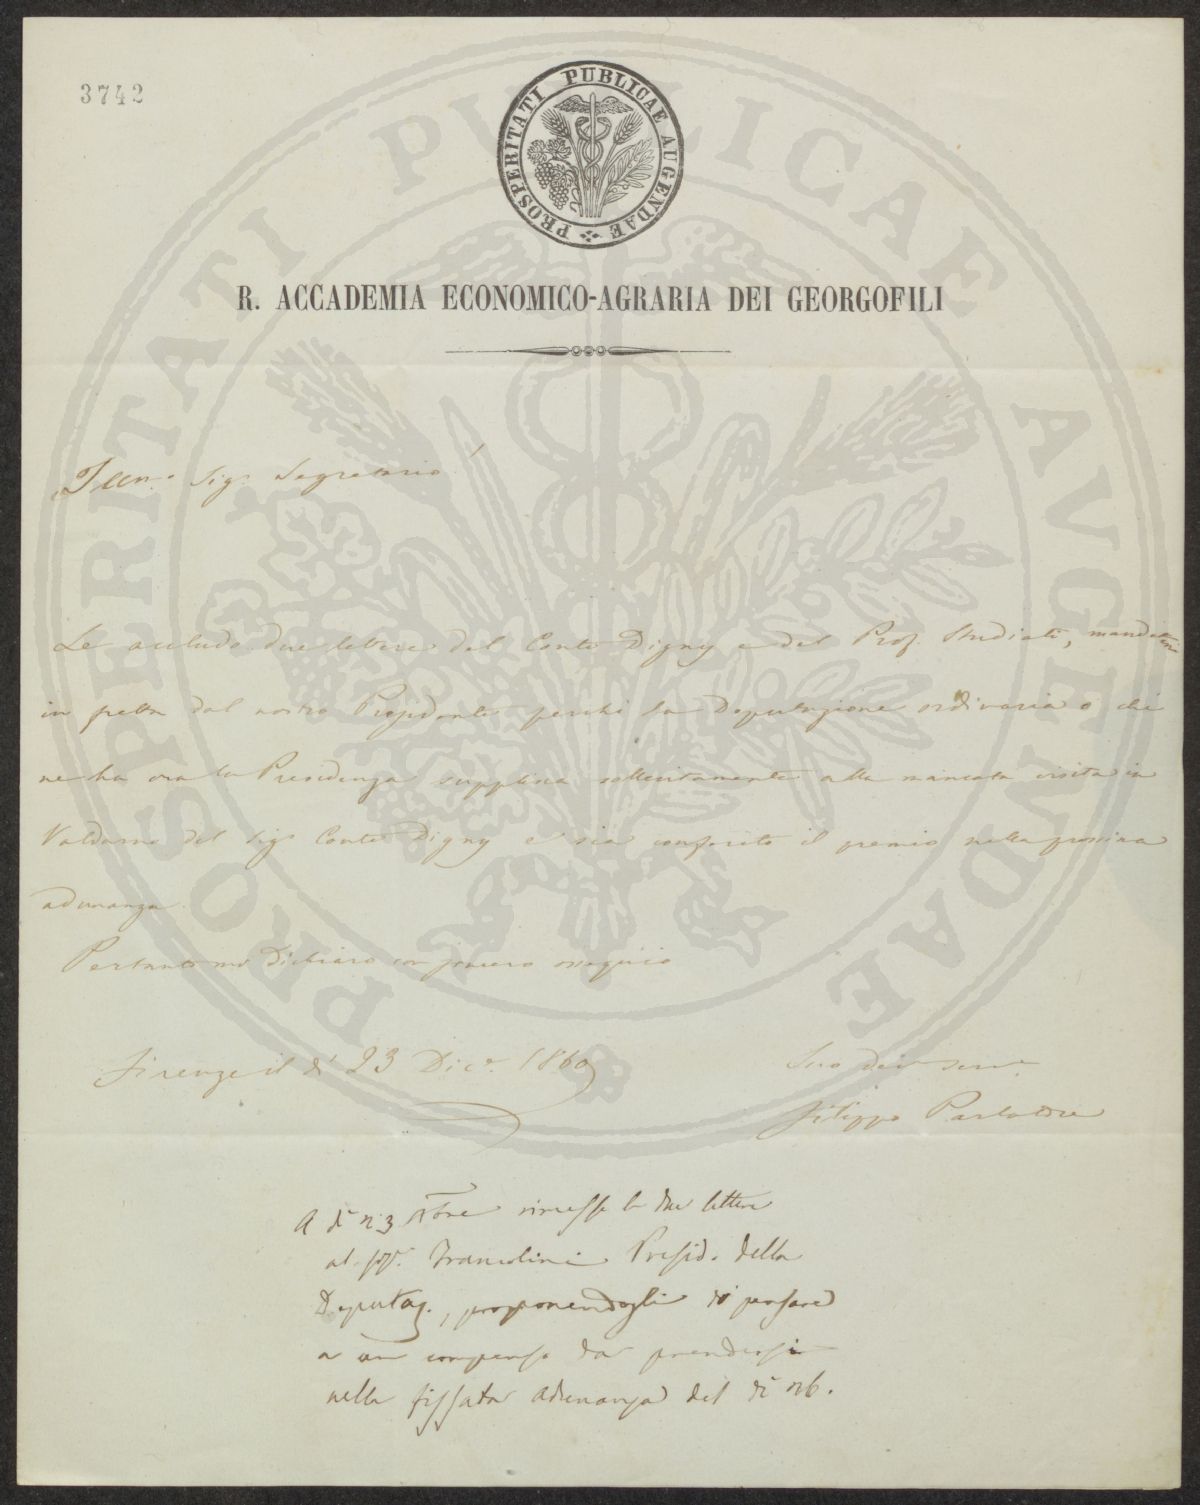 3742
PROSPERITATI PUBLICAE AUGENDAE
R. ACCADEMIA ECONOMICO-AGRARIA DEI GEORGOFILI
PROSPERITATI PUBLICAE AVGENDAE
Illmo. Sig. Segretario!
Le accludo due lettere del Conte Digny e del Prof. Studiati,
in dal nostro Presidente perchè la Deputazione ordinaria o chi
ne ha ora la Presidenza supplisca sollecitamente alla mancata visita in
Valdarno del Sig. Conte Digny e sia conferito il premio nella prossima
adunanza.
Pertanto mi dichiaro con sincero ossequio
Firenze il dì 23 Dice. 1860
Suo dev serv.
Filippo Parlatore
A dì 23 rimesse le due lettere
al sig. Presid. della
Deputaz., proponendogli di pensare
a un compenso da prendersi
nella fissata adunanza del dì 26.